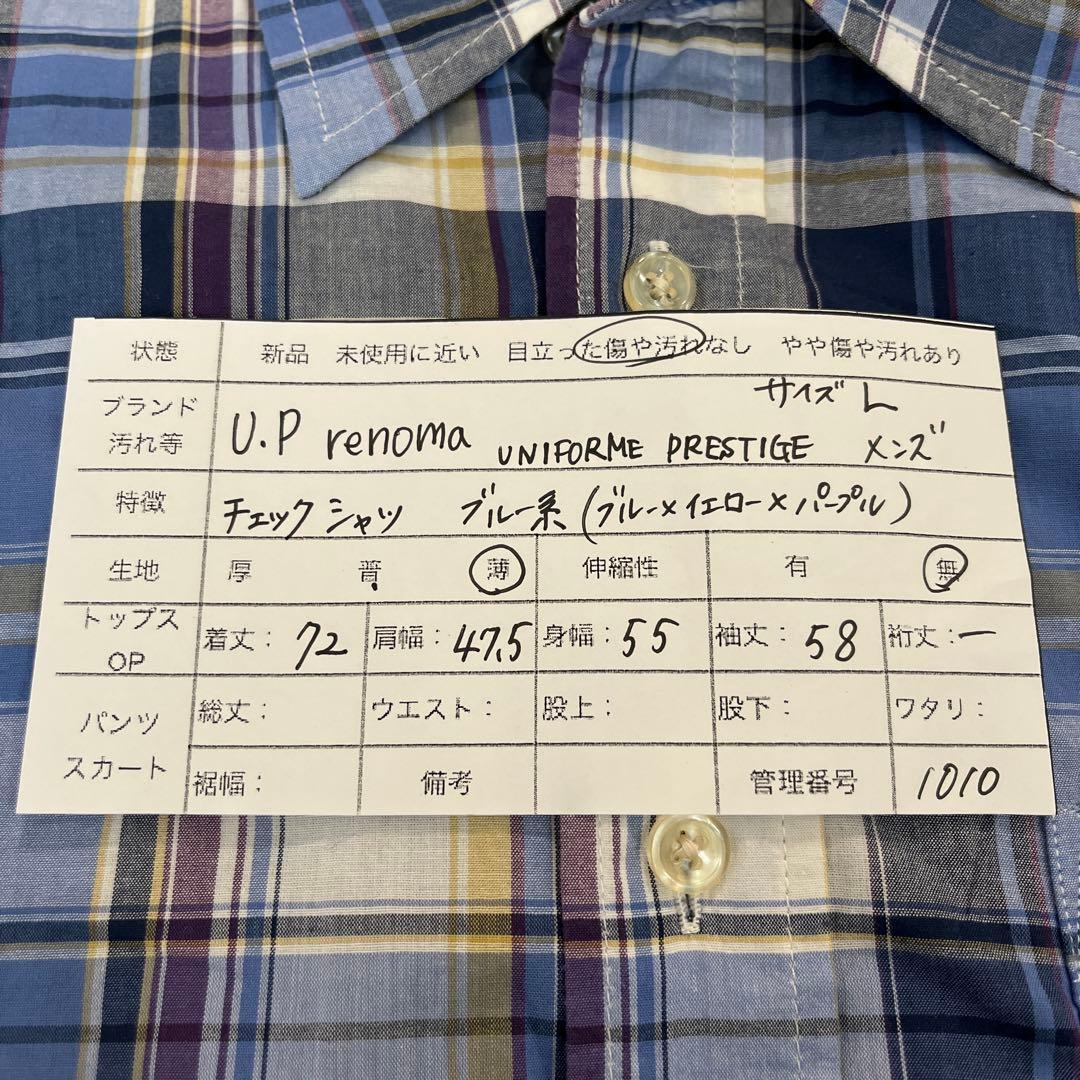 状態 新品 未使用に近い 目立った傷や汚れなし やや傷や汚れあり
サイズ L
ブランド
汚れ等 U.P renoma UNIFORME PRESTIGE メンズ
特徴 チェックシャツ ブルー系(ブルー×イエロー×パープル)
生地 厚 普 薄 伸縮性 有 無
トップス
OP 着丈: 72 肩幅: 47.5 身幅: 55 袖丈: 58 裄丈: ー
パンツ
スカート 総丈: ウエスト: 股上: 股下: ワタリ:
裾幅: 備考 管理番号 1010